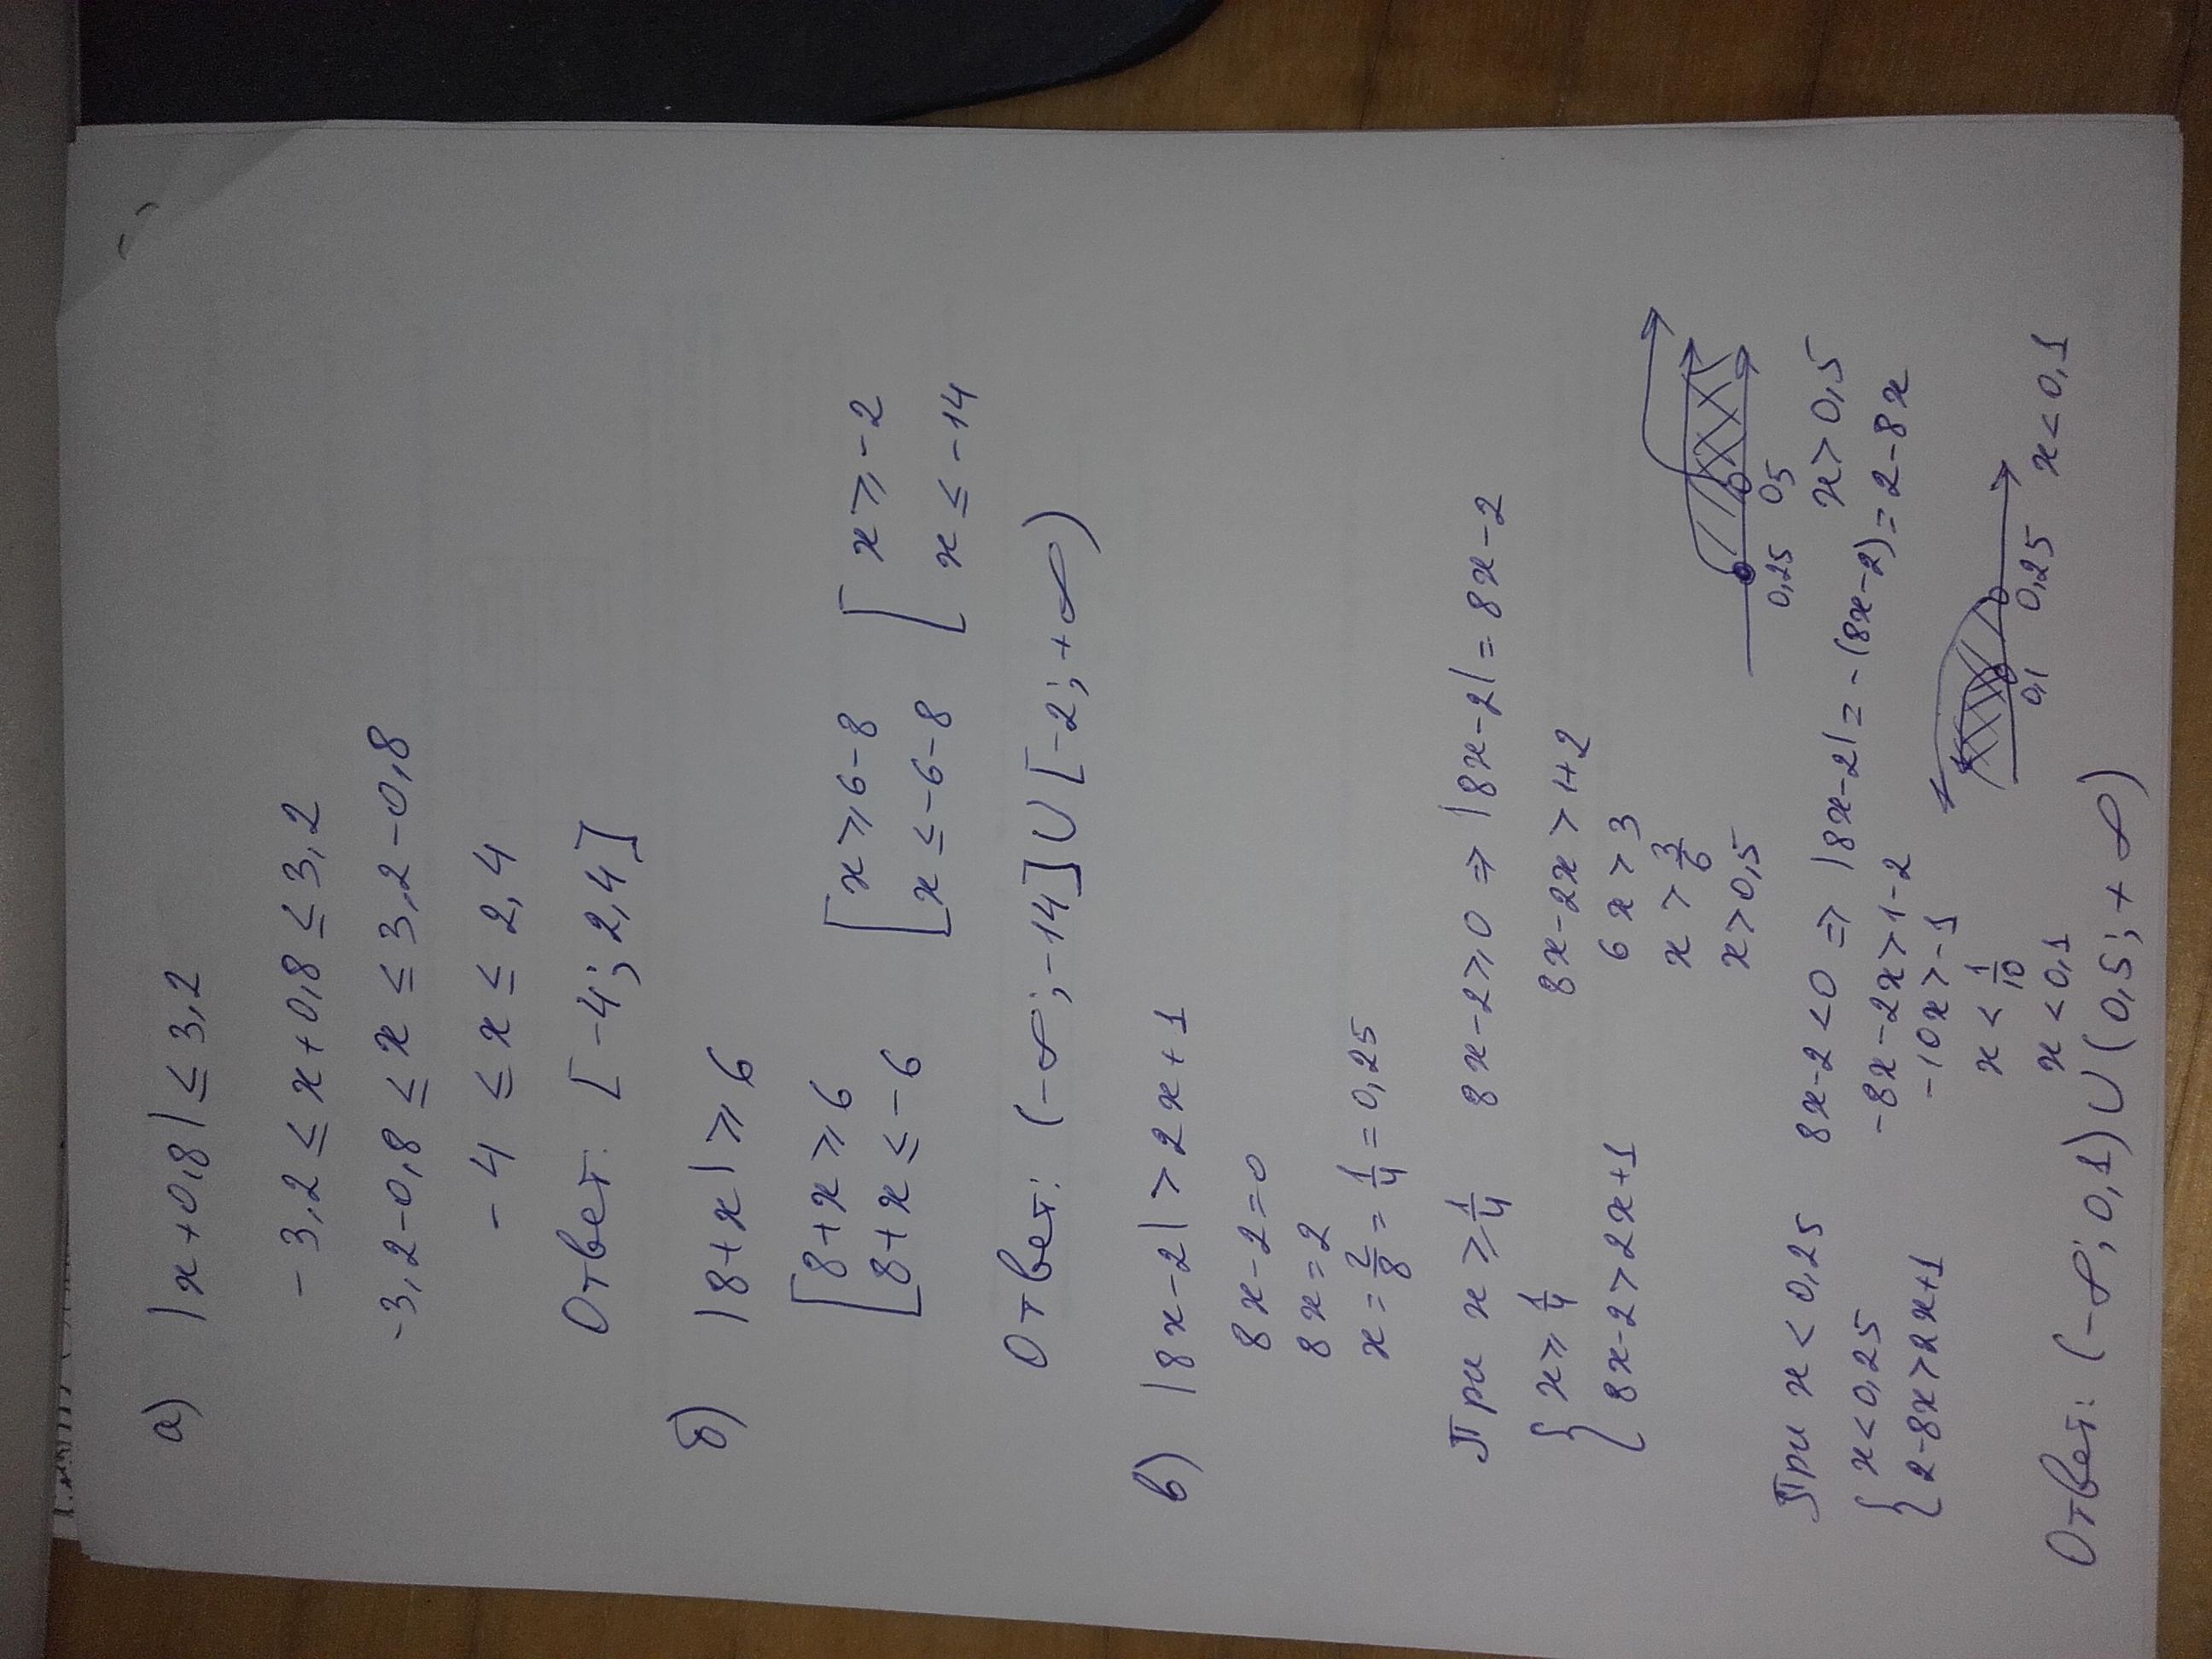 а) |x+0,8| ≤ 3,2
-3,2 ≤ x+0,8 ≤ 3,2
-3,2-0,8 ≤ x ≤ 3,2-0,8
-4 ≤ x ≤ 2,4
Ответ: [-4; 2,4]
б) |8+x| ⩾ 6
[8+x ⩾ 6 [x ⩾ 6-8 [x ⩾ -2
[8+x ≤ -6 [x ≤ -6-8 [x ≤ -14
Ответ: (-∞; -14] ∪ [-2; +∞)
в) |8x-2| > 2x+1
8x-2=0
8x=2
x = 2/8 = 1/4 = 0,25
При x ⩾ 1/4 8x-2 ⩾ 0 ⇒ |8x-2| = 8x-2
{x ⩾ 1/4 8x-2x > 1+2
{8x-2 > 2x+1 6x > 3
x > 3/6
x > 0,5
0,25 0,5
x > 0,5
При x < 0,25 8x-2 < 0 ⇒ |8x-2| = -(8x-2) = 2-8x
{x < 0,25 -8x-2x > 1-2
{2-8x > 2x+1 -10x > -1
x < 1/10
x < 0,1
0,1 0,25 x < 0,1
Ответ: (-∞; 0,1) ∪ (0,5; +∞)